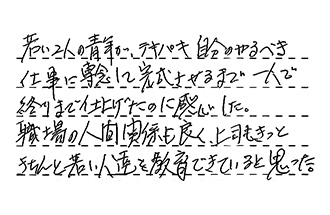 若い2人の青年が、テキパキ自分のやるべき
仕事に専念して完成させるまで一人で
終りまで仕上げたのに感心した。
職場の人間関係も良く、上司もきっと
きちんと若い人達を教育できていると思った。